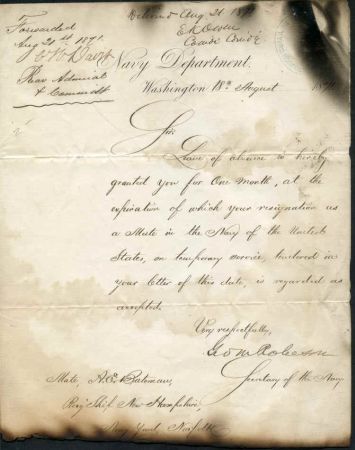 Forwarded
Aug 21st 1871.
Rear Admiral
& Commdt
Aug. 21
Navy Department.
Washington 18th August
Sir:
Leave of absence is hereby
granted you for One Month, at the
expiration of which your resignation as
a Mate in the Navy of the United
States, on temporary service, tendered in
your letter of this date, is regarded as
accepted.
Very respectfully,
Geo M Robeson
Secretary of the Navy
Mate, A. E. Bateman,
Rec'g Ship New Hampshire,
Navy Yard Norfolk